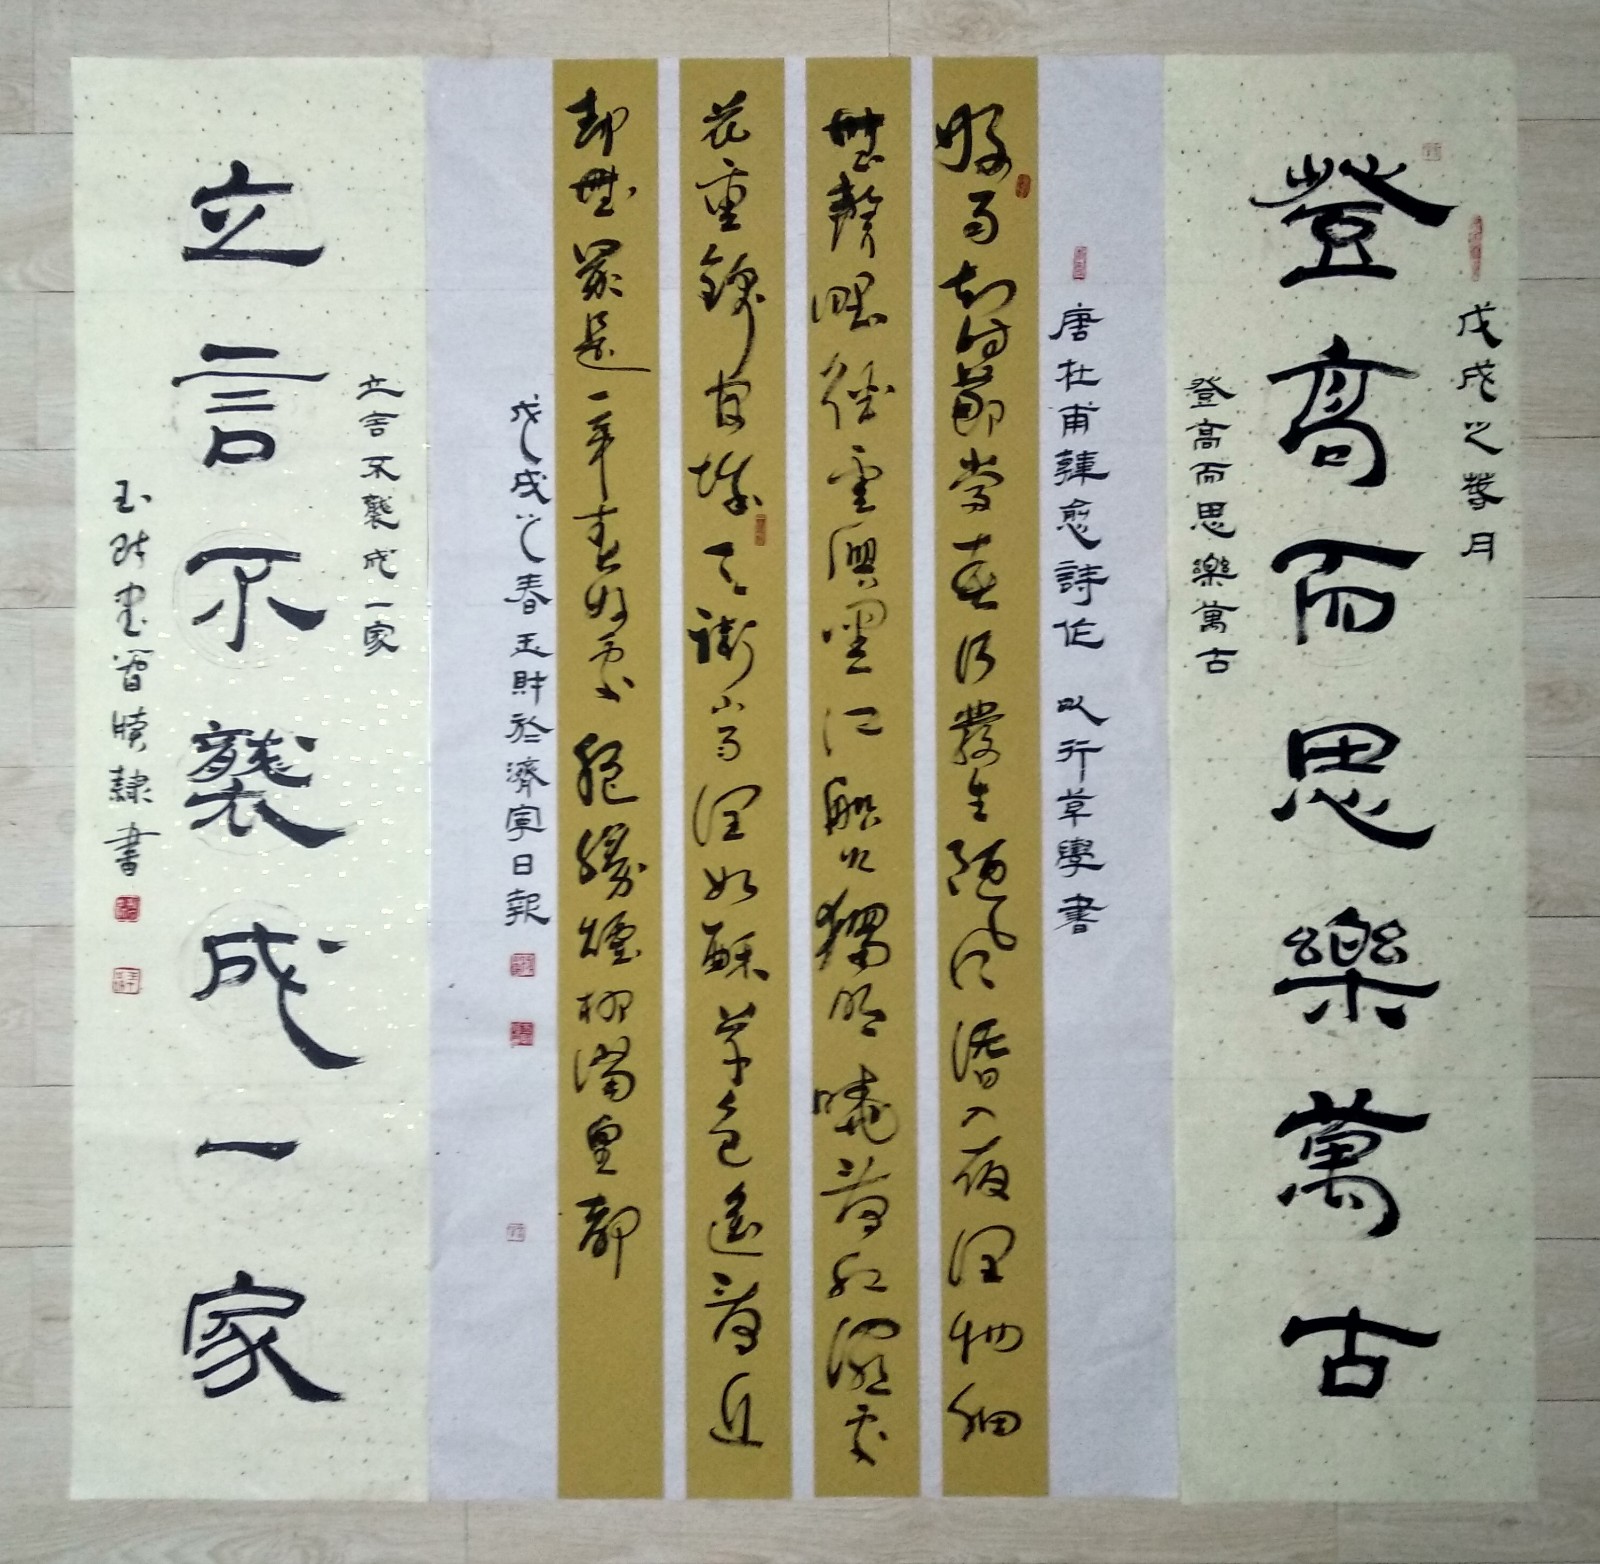 戊戌之月
登高而思樂萬古
登高而思樂萬古
唐杜甫韓愈詩作 以行草學書
好雨知時節當春乃發生隨風潛入夜潤物細
無聲野徑雲俱黑江船火獨明曉看紅濕處
花重錦官城天街小雨潤如酥草色遙看近
却無最是一年春好處絕勝煙柳滿皇都
戊戌之春玉財於濟寧日報
立言不襲成一家
立言不襲成一家
玉財書牘隸書